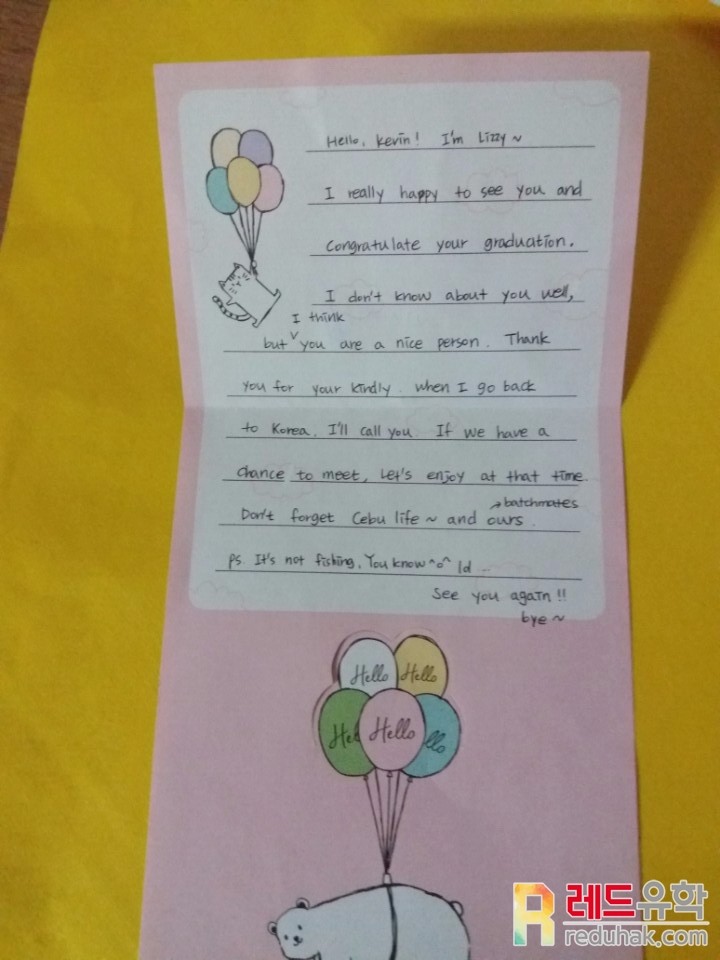 Hello, Kevin! I'm Lizzy ~
I really happy to see you and
Congratulate your graduation.
I don't know about you well,
I think
but you are a nice person. Thank
you for your kindly. when I go back
to Korea, I'll call you. If we have a
chance to meet, Let's enjoy at that time.
→ batchmates
Don't forget Cebu life ~ and ours.
ps. It's not fishing, You know ^o^
See you again!!
bye ~
Hello
Hello
Hel
Hello
llo
레드유학
reduhak.com